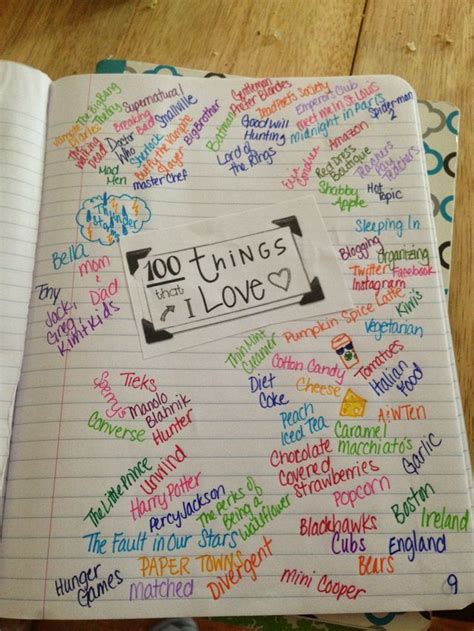 The Big Bang Theory
Supernatural
Smallville
Vampire Diaries
The Walking Dead
Breaking Bad
Doctor Who
Sherlock
Buffy the Vampire Slayer
Big Brother
Mad Men
Master Chef
Batman
Gentlemen Prefer Blondes
Dead Poets Society
Emperor's Club
meet me in St Louis
midnight in Paris
Spider-man 2
Good Will Hunting
Lord of the Rings
Amazon
Red Dress Boutique
Teachers Pay Teachers
Shabby Apple
Hot Topic
Thunder Storms
Sleeping In
Bella
mom + Dad
Tony
Jacki,
Greg,
Kimt Kids
100 things
that
I LOVE
Blogging
Organizing
Twitter
Facebook
Instagram
Pumpkin Spice Latte
Kiwis
Vegetarian
Thin Mint Creamer
Cotton Candy
Tomatoes
Diet Coke
Cheese
Italian Food
Tieks
Sperry's
Manolo Blahnik
Converse
Hunter
Peach Iced Tea
Caramel Macchiatos
Garlic
Chocolate Covered Strawberries
Popcorn
The Little Prince
Unwind
Harry Potter
Percy Jackson
The Perks of Being a Wallflower
Boston
Ireland
Blackhawks
Cubs
England
Bears
The Fault in Our Stars
PAPER TOWNS
Divergent
Hunger Games
matched
mini Cooper
9